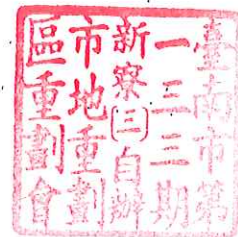 臺南市第
一三三期
新寮(三)自辦
市地重劃
區重劃會